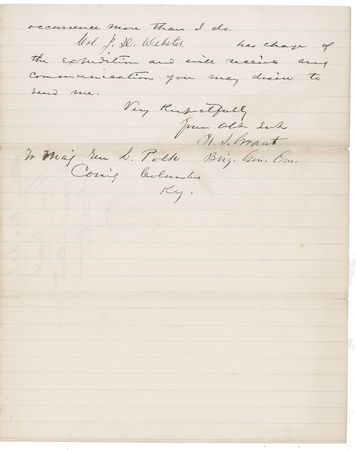 occurrence more than I do.
Col. J. D. Webster has charge of
the expedition and will receive any
communication you may desire to
send me.
Very Respectfully
Your Obt Svt
U. S. Grant
To Maj Gen L. Polk Brig. Gen. Com.
Comg Columbus
Ky.